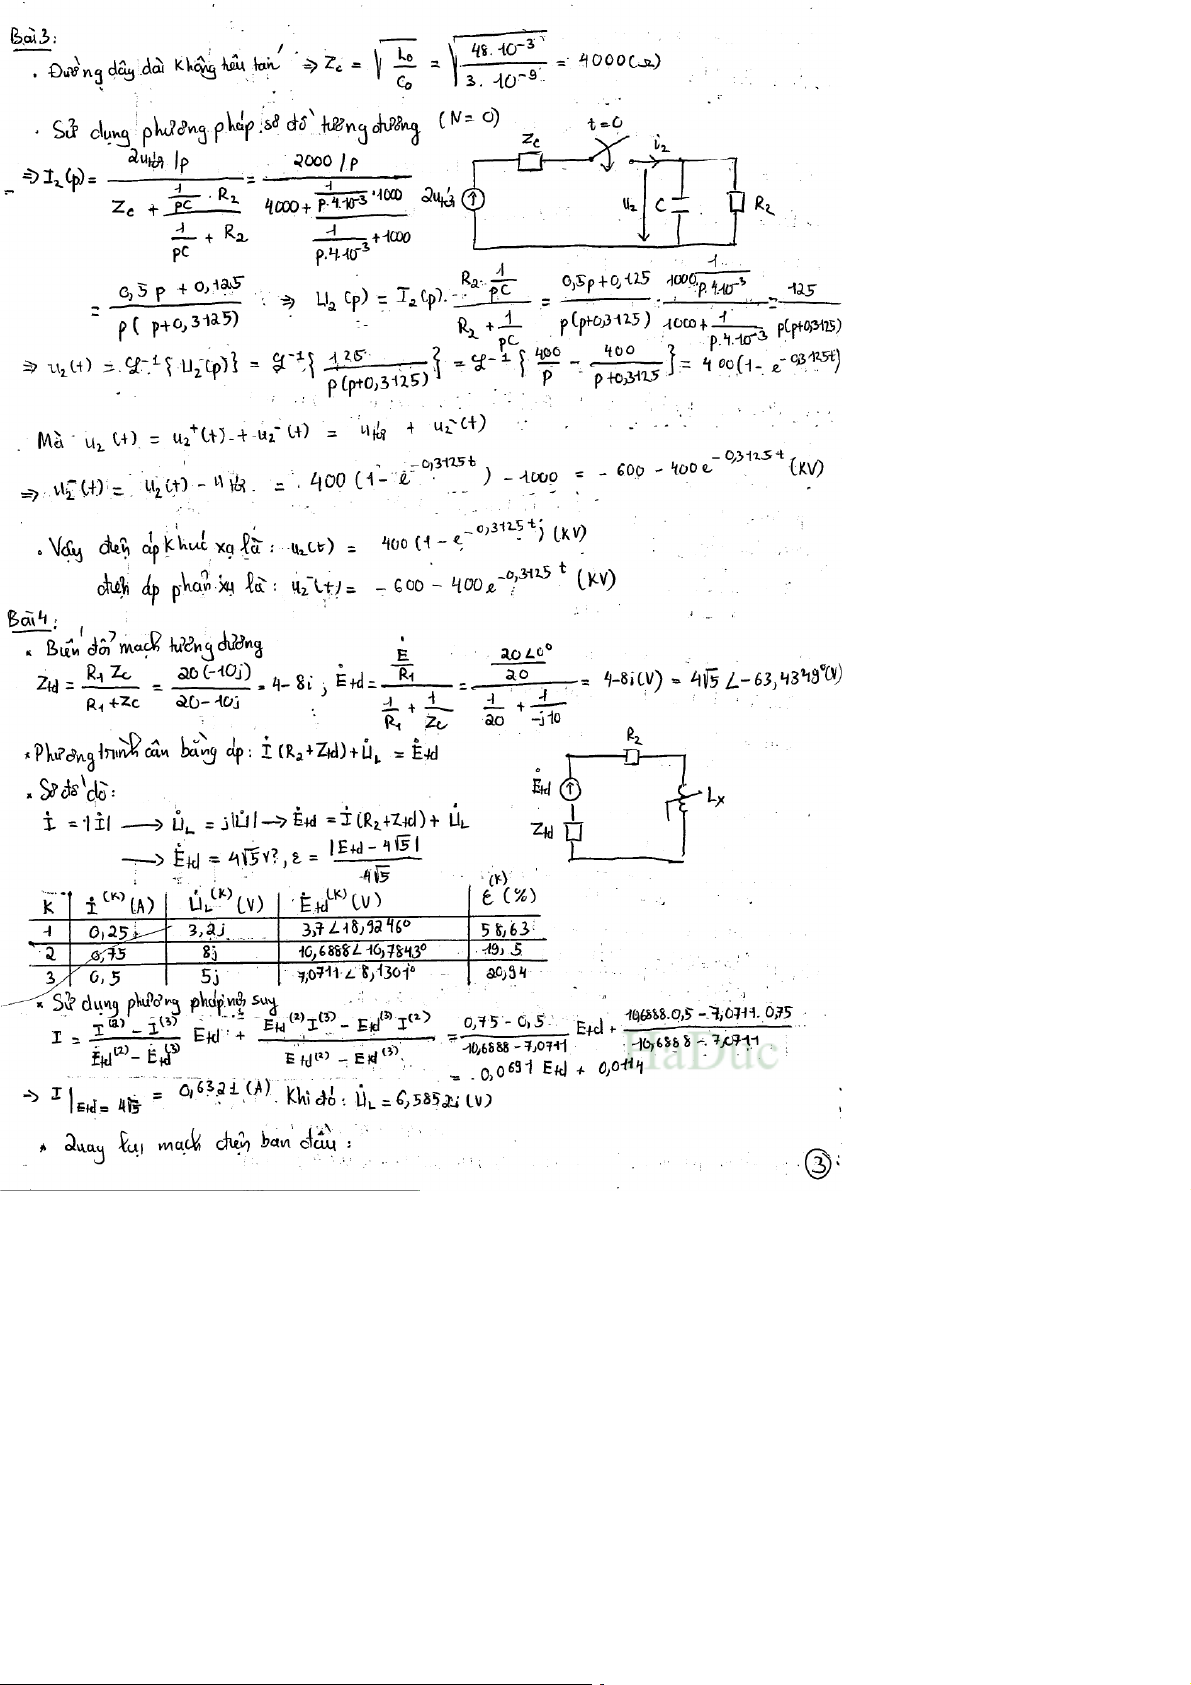 Bài 3:
. Đường dây dài không tiêu tán ⇒ Zc = √(L0/C0) = √(48.10^-3 / 3.10^-9) = 4000 (Ω)
. Sử dụng phương pháp sơ đồ tương đương (N = 0)
t=0
Zc i2 2utới u2 C R2
⇒ I2(p) = (2utới/p) / (Zc + (1/pC . R2)/(1/pC + R2)) = (2000/p) / (4000 + (1/(p.4.10^-3) .1000)/(1/(p.4.10^-3) + 1000))
= (0,5p + 0,125) / (p(p+0,3125)) ⇒ U2(p) = I2(p). (R2. 1/pC)/(R2 + 1/pC) = (0,5p+0,125)/(p(p+0,3125)) . (1000. 1/(p.4.10^-3))/(1000 + 1/(p.4.10^-3)) = 125/(p(p+0,3125))
⇒ u2(t) = L^-1{U2(p)} = L^-1{125/(p(p+0,3125))} = L^-1{400/p - 400/(p+0,3125)} = 400(1 - e^-0,3125t)
. Mà u2(t) = u2^+(t) + u2^-(t) = utới + u2^-(t)
⇒ u2^-(t) = u2(t) - utới = 400 (1 - e^-0,3125t) - 1000 = - 600 - 400e^-0,3125t (KV)
. Vậy điện áp khúc xạ là: u2(t) = 400 (1 - e^-0,3125t) (KV)
điện áp phản xạ là: u2^-(t) = - 600 - 400e^-0,3125t (KV)
Bài 4:
* Biến đổi mạch tương đương
Ztđ = R1 Zc/(R1 + Zc) = 20(-10j)/(20-10j) = 4-8i ; Ėtđ = (Ė/R1)/(1/R1 + 1/Zc) = (20∠0°/20)/(1/20 + 1/-j10) = 4-8i (V) = 4√5 ∠-63,4349° (V)
* Phương trình cân bằng áp: İ (R2 + Ztđ) + U̇L = Ėtđ
R2 Ėtđ Ztđ Lx
* Sơ đồ dò:
İ = |İ| → U̇L = j|U̇| → Ėtđ = İ (R2 + Ztđ) + U̇L
→ Ėtđ = 4√5 V?, ε = |Etđ - 4√5| / 4√5
K | İ^(K) (A) | U̇L^(K) (V) | Ėtđ^(K) (V) | ε^(K) (%)
1 | 0,25 | 3,2j | 3,7∠18,9246° | 58,63
2 | 0,75 | 8j | 10,6888∠10,7843° | 19,5
3 | 0,5 | 5j | 7,0711∠8,1301° | 20,94
* Sử dụng phương pháp nội suy
I = (I^(2) - I^(3))/(Ėtđ^(2) - Ėtđ^(3)) Etđ + (Etđ^(2) I^(3) - Etđ^(3) I^(2))/(Etđ^(2) - Etđ^(3)) = (0,75 - 0,5)/(10,6888 - 7,0711) Etđ + (10,6888.0,5 - 7,0711.0,75)/(10,6888 - 7,0711)
= 0,0691 Etđ + 0,0114
HaDuc
→ I|Etđ = 4√5 = 0,6321 (A). Khi đó: U̇L = 6,5852i (V)
* Quay lại mạch điện ban đầu:
3